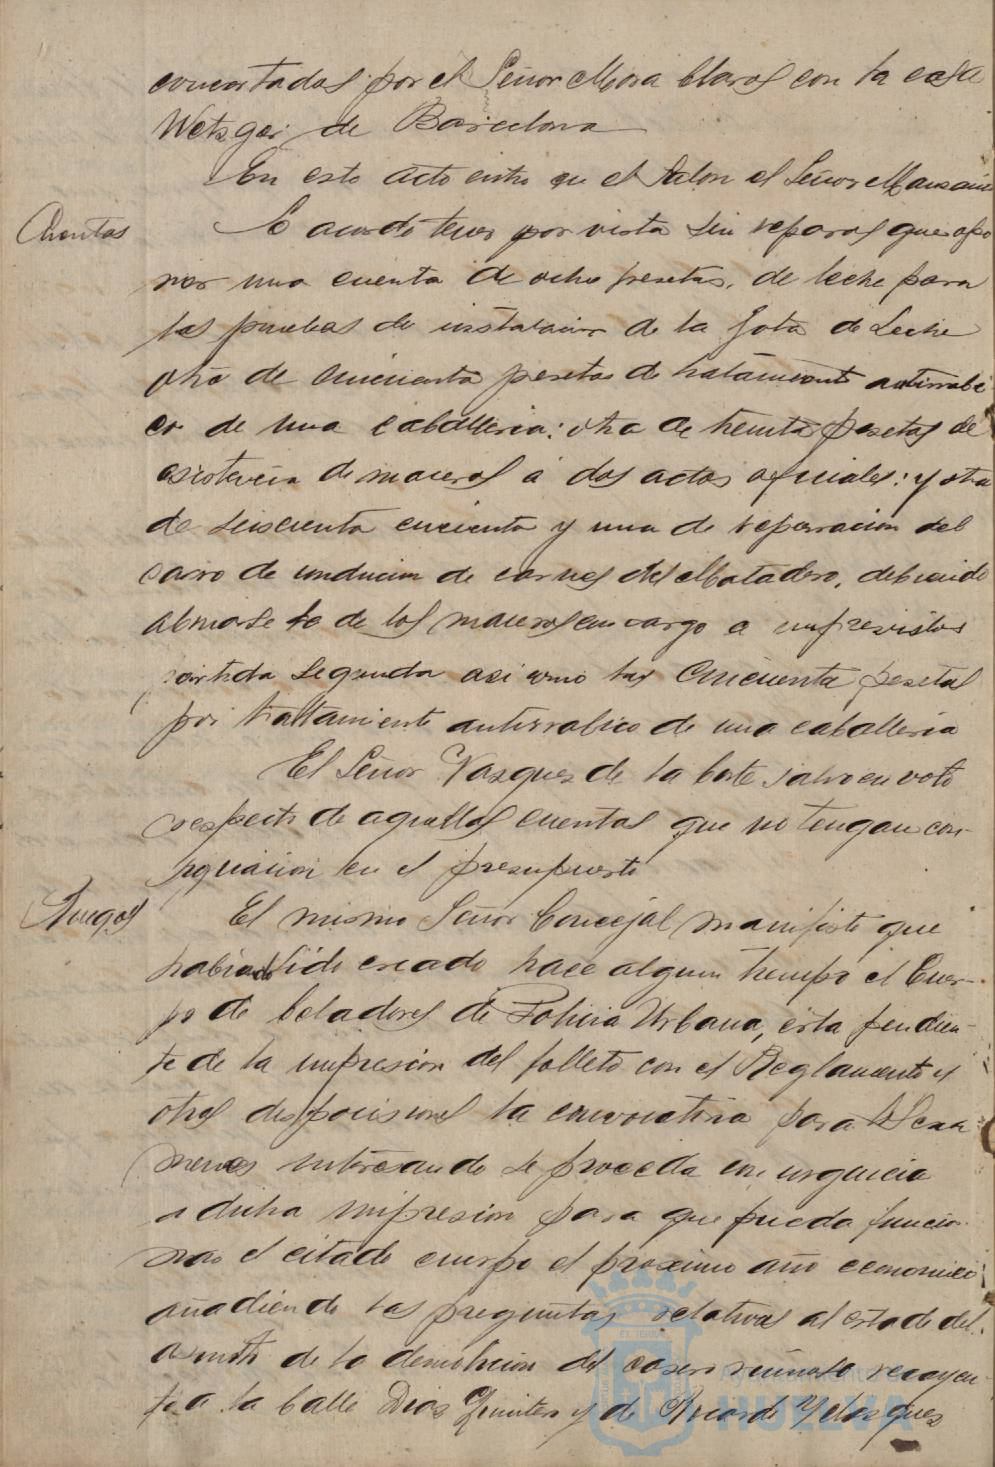 concertadas por el Señor Mora Claros con la casa
Wetzger de Barcelona
En este acto entro en el Salon el Señor Manzano
Cuentas
Se acordó tener por vista sin reparos que opo
ner una cuenta de ocho pesetas, de leche para
las pruebas de instalacion de la Gota de Leche
otra de cincuenta pesetas de tratamiento antirrabi
co de una caballeria: otra de treinta pesetas de
asistencia de maceros a dos actos oficiales: y otra
de seiscienta cincuenta y una de reparacion del
carro de conduccion de carnes del Matadero, debiendo
abonarse la de los maceros con cargo a imprevistos
partida segunda asi como las cincuenta pesetas
por trattamiento antirrabico de una caballeria
El Señor Vazquez de la Corte salvo su voto
respecto de aquellas cuentas que no tengan con-
signacion en el presupuesto
Ruegos
El mismo Señor Concejal manifesto que
habiendo sido creado hace algun tiempo el Cuer-
po de Celadores de Policia Urbana, esta pendien-
te de la impresion del folleto con el Reglamento y
otras disposiciones la convocatoria para los exa
menes interesando se proceda con urgencia
a dicha impresion para que pueda funcio-
nar el citado cuerpo el proximo año economico
añadiendo las preguntas relativas al estado del
asunto de la demolicion del casero ruinoso recayen-
te a la Calle Dias Quintero y de Ricardo Velazquez
AYUNTAMIENTO DE
HUELVA